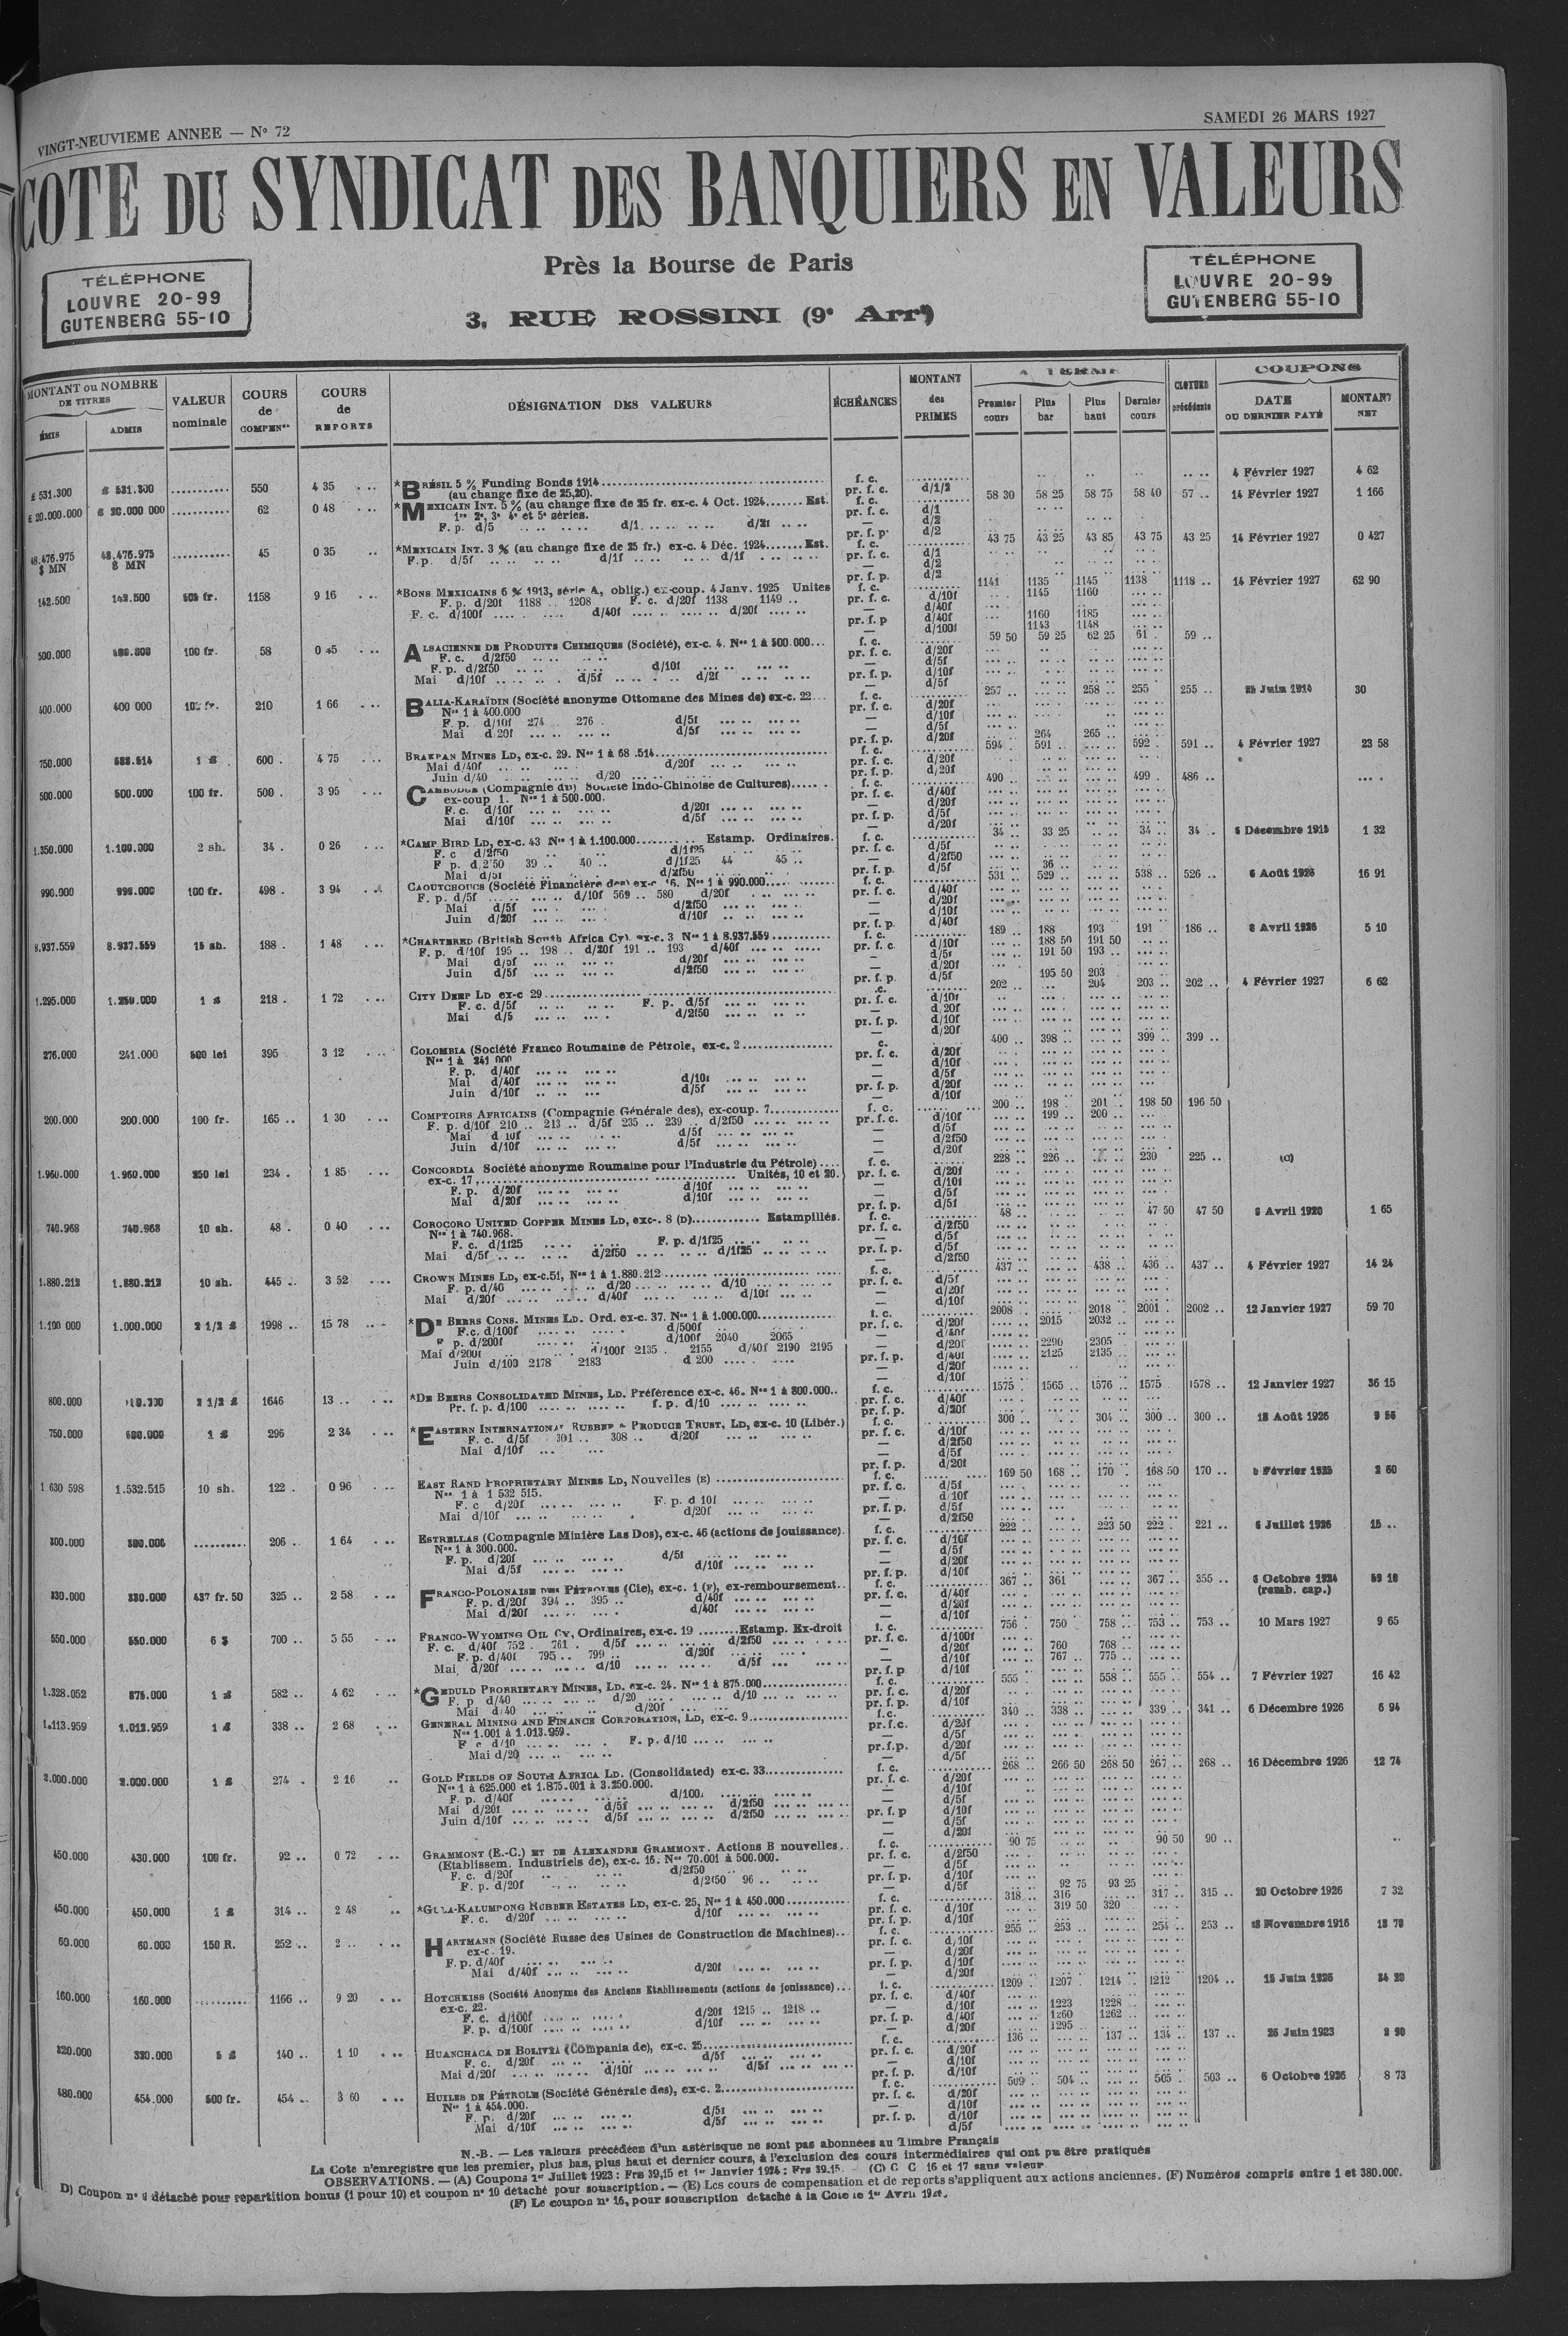 VINGT-NEUVIEME ANNEE — N° 72
SAMEDI 26 MARS 1927
COTE DU SYNDICAT DES BANQUIERS EN VALEURS
Près la Bourse de Paris
3, RUE ROSSINI (9e Arrt)
TÉLÉPHONE
LOUVRE 20-99
GUTENBERG 55-10
TÉLÉPHONE
LOUVRE 20-99
GUTENBERG 55-10
MONTANT ou NOMBRE DE TITRES
ÉMIS
ADMIS
VALEUR nominale
COURS de COMPENon
COURS de REPORTS
DÉSIGNATION DES VALEURS
ÉCHÉANCES
MONTANT des PRIMES
A TERME
Premier cours
Plus bas
Plus haut
Dernier cours
CLOTURE précédente
COUPONS
DATE DU DERNIER PAYÉ
MONTANT NET
£ 531.300 £ 531.300 .......... 550 4 35 *BRÉSIL 5 % Funding Bonds 1914 f. c. 4 Février 1927 4 62
(au change fixe de 25,20). pr. f. c. d/1/2
£ 20.000.000 £ 20.000 000 .......... 62 0 48 *MEXICAIN INT. 5 % (au change fixe de 25 fr. ex-c. 4 Oct. 1924 Est. f. c. 58 30 58 25 58 75 58 40 57 .. 14 Février 1927 1 166
1re 2e, 3e 4e et 5e séries. pr. f. c. d/1
F. p. d/5 d/1 d/2f — d/2
pr. f. p. d/2
48.476.975 $ MN 48.476.975 $ MN .......... 45 0 35 *MEXICAIN INT. 3 % (au change fixe de 25 fr.) ex-c. 4 Déc. 1924 Est. f. c. 43 75 43 25 43 85 43 75 43 25 14 Février 1927 0 427
F.p. d/5f d/1f d/1f pr. f. c. d/1
— d/2
pr. f. p. d/2
142.500 142.500 505 fr. 1158 9 16 *BONS MEXICAINS 6 % 1913, série A, oblig.) ex-coup. 4 Janv. 1925 Unités f. c. 1141 1135 1145 1138 1118 .. 14 Février 1927 62 90
F. p. d/20f 1188 .. 1208 F. c. d/20f 1138 1149 .. pr. f. c. d/10f 1145 1160
F. c. d/100f d/40f d/20f — d/40f
pr. f. p d/40f 1160 1185
— d/100f 1143 1148
500.000 100 fr. 58 0 45 ALSACIENNE DE PRODUITS CHIMIQUES (Société), ex-c. 4. Nos 1 à 500.000 f. c. 59 50 59 25 62 25 61 . 59 ..
F. c. d/2f50 pr. f. c. d/20f
F. p. d/2f50 d/10f — d/5f
Mai d/10f d/5f d/2f pr. f. p. d/10f
— d/5f
400.000 400 000 100 fr. 210 1 66 BALIA-KARAÏDIN (Société anonyme Ottomane des Mines de) ex-c. 22 f. c. 257 .. 258 .. 255 255 .. 25 Juin 1914 30
Nos 1 à 400.000 pr. f. c. d/20f
F. p. d/10f 274 . 276 . d/5f — d/10f
Mai d 20f d/5f — d/5f
pr. f. p. d/20f 264 265 ..
750.000 1 £ 600 . 4 75 BRAKPAN MINES LD, ex-c. 29. f. c. 594 . 591 .. 592 . 591 .. 4 Février 1927 23 58
Mai d/40f d/20f pr. f. c. d/20f
Juin d/40 d/20 pr. f. p. d/20f
500.000 500.000 100 fr. 500 . 3 95 CAMBODGE (Compagnie du) Société Indo-Chinoise de Cultures) f. c. 490 .. 499 . 486 ..
ex-coup 1. Nos 1 à 500.000. pr. f. c. d/40f
F. c. d/10f d/20f — d/20f
Mai d/10f d/5f pr. f. p. d/5f
— d/20f
1.350.000 1.100.000 2 sh. 34 . 0 26 *CAMP BIRD LD, ex-c. 43 Nos 1 à 1.100.000 Estamp. Ordinaires. f. c. 34 .. 33 25 34 .. 34 .. 6 Décembre 1915 1 32
F. c d/2f50 d/1f25 pr. f. c. d/5f
F. p. d 2'50 39 .. 40 .. d/1f25 44 45 .. — d/2f50
Mai d/5f d/2f50 pr. f. p. d/5f 36 ..
990.000 990.000 100 fr. 498 . 3 94 CAOUTCHOUCS (Société Financière des) ex-c 16. Nos 1 à 990.000 f. c. 531 .. 529 .. 538 .. 526 .. 6 Août 1926 16 91
F. p. d/5f d/10f 569 .. 580 d/20f pr. f. c. d/40f
Mai d/5f d/2f50 — d/20f
Juin d/20f d/10f — d/10f
pr. f. p. d/40f
8.937.559 8.937.559 15 sh. 188 . 1 48 *CHARTERED (British South Africa Cy). ex-c. 3 Nos 1 à 8.937.559 f. c. 189 .. 188 193 191 186 .. 8 Avril 1926 5 10
F. p. d/10f 195 .. 198 .. d/20f 191 .. 193 d/40f pr. f. c. d/10f 188 50 191 50
Mai d/5f d/20f — d/5f 191 50 193 ..
Juin d/5f d/2f50 — d/20f
pr. f. p. d/5f 195 50 203
1.295.000 1.250.000 1 £ 218 . 1 72 CITY DEEP LD ex-c 29 .c. 202 .. 204 203 .. 202 .. 4 Février 1927 6 62
F. c. d/5f F. p. d/5f pr. f. c. d/10f
Mai d/5 d/2f50 — d 20f
pr. f. p. d/10f
— d/20f
276.000 241.000 500 lei 395 3 12 COLOMBIA (Société Franco Roumaine de Pétrole, ex-c. 2 c. 400 .. 398 .. 399 .. 399 ..
Nos 1 à 241 000 pr. f. c. d/20f
F. p. d/40f — d/10f
Mai d/40f d/10f — d/5f
Juin d/10f d/5f pr. f. p. d/20f
— d/10f
200.000 200.000 100 fr. 165 .. 1 30 COMPTOIRS AFRICAINS (Compagnie Générale des), ex-coup. 7 f. c. 200 .. 198 201 .. 198 50 196 50
F. p. d/10f 210 .. 213 .. d/5f 235 .. 239 .. d/2f50 pr. f. c. d/10f 199 .. 200 ..
Mai d 10f d/5f — d/5f
Juin d/10f d/5f — d/2f50
— d/20f
1.960.000 1.960.000 250 lei 234 . 1 85 CONCORDIA Société anonyme Roumaine pour l'Industrie du Pétrole) f. c. 228 .. 226 .. 230 225 .. (C)
ex-c. 17, Unités, 10 et 20. pr. f. c. d/20f
F. p. d/20f d/10f — d/10f
Mai d/20f d/10f — d/5f
pr. f. p. d/5f
740.968 740.968 10 sh. 48 . 0 40 COROCORO UNITED COPPER MINES LD, exc-. 8 (D) Estampillés. f. c. 48 .. 47 50 47 50 8 Avril 1920 1 65
Nos 1 à 740.968. pr. f. c. d/2f50
F. c. d/1f25 F. p. d/1f25 — d/5f
Mai d/5f d/2f50 d/1f25 pr. f. p. d/5f
— d/2f50
1.880.212 1.880.212 10 sh. 445 .. 3 52 CROWN MINES LD, ex-c.51, Nos 1 à 1.880.212 f. c. 437 .. 438 .. 436 .. 437 .. 4 Février 1927 14 24
F. p. d/40 d/20 d/10 pr. f. c. d/5f
Mai d/20f d/40f d/10f — d/20f
— d/10f
1.100 000 1.000.000 2 1/2 £ 1998 .. 15 78 *DE BEERS CONS. MINES LD. Ord. ex-c. 37. Nos 1 à 1.000.000 f. c. 2008 .. 2018 2001 2002 .. 12 Janvier 1927 59 70
F.c. d/100f d/500f pr. f. c. d/20f 2015 2032 ..
F p. d/200f d/100f 2040 2065 — d/40f
Mai d/200f d/100f 2135 . 2155 d/40f 2190 2195 — d/20f 2290 2305
Juin d/100 2178 2183 d 200 pr. f. p. d/40f 2125 2135
— d/20f
— d/10f
800.000 2 1/2 £ 1646 13 .. *DE BEERS CONSOLIDATED MINES, LD. Préférence ex-c. 46. Nos 1 à 800.000 f. c. 1575 . 1565 .. 1576 .. 1575 1578 .. 12 Janvier 1927 36 15
Pr. f. p. d/100 f. p. d/10 pr. f. c. d/40f
pr. f. p. d/20f
750.000 600.000 1 £ 296 2 34 *EASTERN INTERNATIONAL RUBBER & PRODUCE TRUST, LD, ex-c. 10 (Libér.) f. c. 300 .. 304 .. 300 .. 300 .. 18 Août 1926 9 56
F. c. d/5f 301 .. 308 .. d/20f pr. f. c. d/10f
Mai d/10f — d/2f50
— d/5f
pr. f. p. d/20f
1 630 598 1.532.515 10 sh. 122 . 0 96 EAST RAND PROPRIETARY MINES LD, Nouvelles (E) f. c. 169 50 168 .. 170 . 168 50 170 .. Février 1925 2 60
Nos 1 à 1 532 515. pr. f. c. d/5f
F. c d/20f F. p. d 10f — d/10f
Mai d/10f d/20f pr. f. p. d/5f
— d/2f50
300.000 300.000 .......... 206 .. 1 64 ESTRELLAS (Compagnie Minière Las Dos), ex-c. 46 (actions de jouissance) f. c. 222 .. 223 50 222 . 221 .. 6 Juillet 1926 15 ..
Nos 1 à 300.000. pr. f. c. d/10f
F. p. d/20f d/5f — d/5f
Mai d/5f d/10f — d/20f
pr. f. p. d/10f
330.000 330.000 437 fr. 50 325 .. 2 58 FRANCO-POLONAISE DES PÉTROLES (Cie), ex-c. 1 (F), ex-remboursement f. c. 367 .. 361 367 .. 355 .. 6 Octobre 1924 59 18
F. p. d/20f 394 .. 395 .. d/40f pr. f. c. d/40f (remb. cap.)
Mai d/20f d/40f — d/20f
— d/10f
550.000 550.000 6 $ 700 .. 5 55 FRANCO-WYOMING OIL CY, Ordinaires, ex-c. 19 Estamp. Ex-droit f. c. 756 . 750 758 .. 753 .. 753 .. 10 Mars 1927 9 65
F. c. d/40f 752 . 761 . d/5f d/2f50 pr. f. c. d/100f
F. p. d/40f 795 .. 799 .. d/20f — d/20f 760 768 ..
Mai d/20f d/10 d/5f — d/10f 767 .. 775 ..
pr. f. p d/10f
1.328.052 875.000 1 £ 582 .. 4 62 *GEDULD PROPRIETARY MINES, LD, ex-c. 24. Nos 1 à 875.000 f. c. 555 558 .. 555 .. 554 .. 7 Février 1927 16 42
F. p d/40 d/20 d/10 pr. f. c. d/20f
Mai d/40 d/20f pr. f. p. d/10f
1.113.959 1.013.959 1 £ 338 .. 2 68 GENERAL MINING AND FINANCE CORPORATION, LD, ex-c. 9 f. c. 340 .. 338 .. 339 .. 341 .. 6 Décembre 1926 6 94
Nos 1.001 à 1.013.959. pr.f.c. d/20f
F c d/10 F. p. d/10 — d/5f
Mai d/20 pr.f.p. d/20f
— d/5f
2.000.000 2.000.000 1 £ 274 . 2 16 GOLD FIELDS OF SOUTH AFRICA LD. (Consolidated) ex-c. 33 f. c. 268 .. 266 50 268 50 267 .. 268 .. 16 Décembre 1926 12 74
Nos 1 à 625.000 et 1.875.001 à 3.250.000. pr. f. c. d/20f
F. p. d/40f d/100f — d/10f
Mai d/20f d/5f d/2f50 — d/5f
Juin d/10f d/5f d/2f50 pr. f. p d/10f
— d/5f
— d/20f
450.000 430.000 100 fr. 92 .. 0 72 GRAMMONT (E.-C.) ET DE ALEXANDRE GRAMMONT. Actions B nouvelles f. c. 90 75 90 50 90 ..
(Etablissem. Industriels de), ex-c. 16. Nos 70.001 à 500.000. pr. f. c. d/2f50
F. c. d/20f d/2f50 — d/5f
F. p. d/20f d/2f50 96 .. pr. f. p. d/10f
— d/5f 92 75 93 25
450.000 450.000 1 £ 314 .. 2 48 *GULA-KALUMPONG RUBBER ESTATES LD, ex-c. 25, Nos 1 à 450.000 f. c. 318 .. 316 317 .. 315 .. 20 Octobre 1926 7 32
F. c. d/20f d/10f pr. f. c. d/10f 319 50 320
pr. f. p. d/10f
60.000 60.000 150 R. 252 .. 2 .. HARTMANN (Société Russe des Usines de Construction de Machines) f. c. 255 .. 253 .. 254 .. 253 .. Novembre 1916 18 70
ex-c. 19. pr. f. c. d/10f
F. p. d/40f — d/20f
Mai d/40f d/20f pr. f. p. d/10f
— d/20f
160.000 160.000 .......... 1166 .. 9 20 HOTCHKISS (Société Anonyme des Anciens Etablissements (actions de jouissance) f. c. 1209 .. 1207 1214 .. 1212 1204 .. 15 Juin 1926 34 20
ex-c. 22. pr. f. c. d/40f
F. c. d/100f d/20f 1215 .. 1218 .. — d/10f 1223 1228 ..
F. p. d/100f d/10f pr. f. p. d/40f 1260 1262
— d/20f 1295 ..
320.000 320.000 5 £ 140 .. 1 10 HUANCHACA DE BOLIVIA (Compania de), ex-c. 25 f. c. 136 .. 137 .. 134 .. 137 .. 26 Juin 1923 2 90
F. c. d/20f d/5f pr. f. c. d/20f
Mai d/20f d/10f d/5f — d/10f
pr. f. p. d/10f
480.000 454.000 500 fr. 454 .. 3 60 HUILES DE PÉTROLE (Société Générale des), ex-c. 2 f. c. 509 .. 504 .. 505 .. 503 .. 6 Octobre 1926 8 73
Nos 1 à 454.000. pr. f. c. d/20f
F. p. d/20f d/5f — d/10f
Mai d/10f d/5f pr. f. p. d/10f
— d/5f
N.-B. — Les valeurs précédées d'un astérisque ne sont pas abonnées au Timbre Français
La Cote n'enregistre que les premier, plus bas, plus haut et dernier cours, à l'exclusion des cours intermédiaires qui ont pu être pratiqués
OBSERVATIONS. — (A) Coupons 1er Juillet 1923 : Frs 39,15 et 1er Janvier 1924 : Frs 39.15. - (C) C C 16 et 17 sans valeur
D) Coupon n° 9 détaché pour répartition bonus (1 pour 10) et coupon n° 10 détaché pour souscription. — (E) Les cours de compensation et de reports s'appliquent aux actions anciennes. (F) Numéros compris entre 1 et 380.000.
(F) Le coupon n° 16, pour souscription détaché à la Cote le 1er Avril